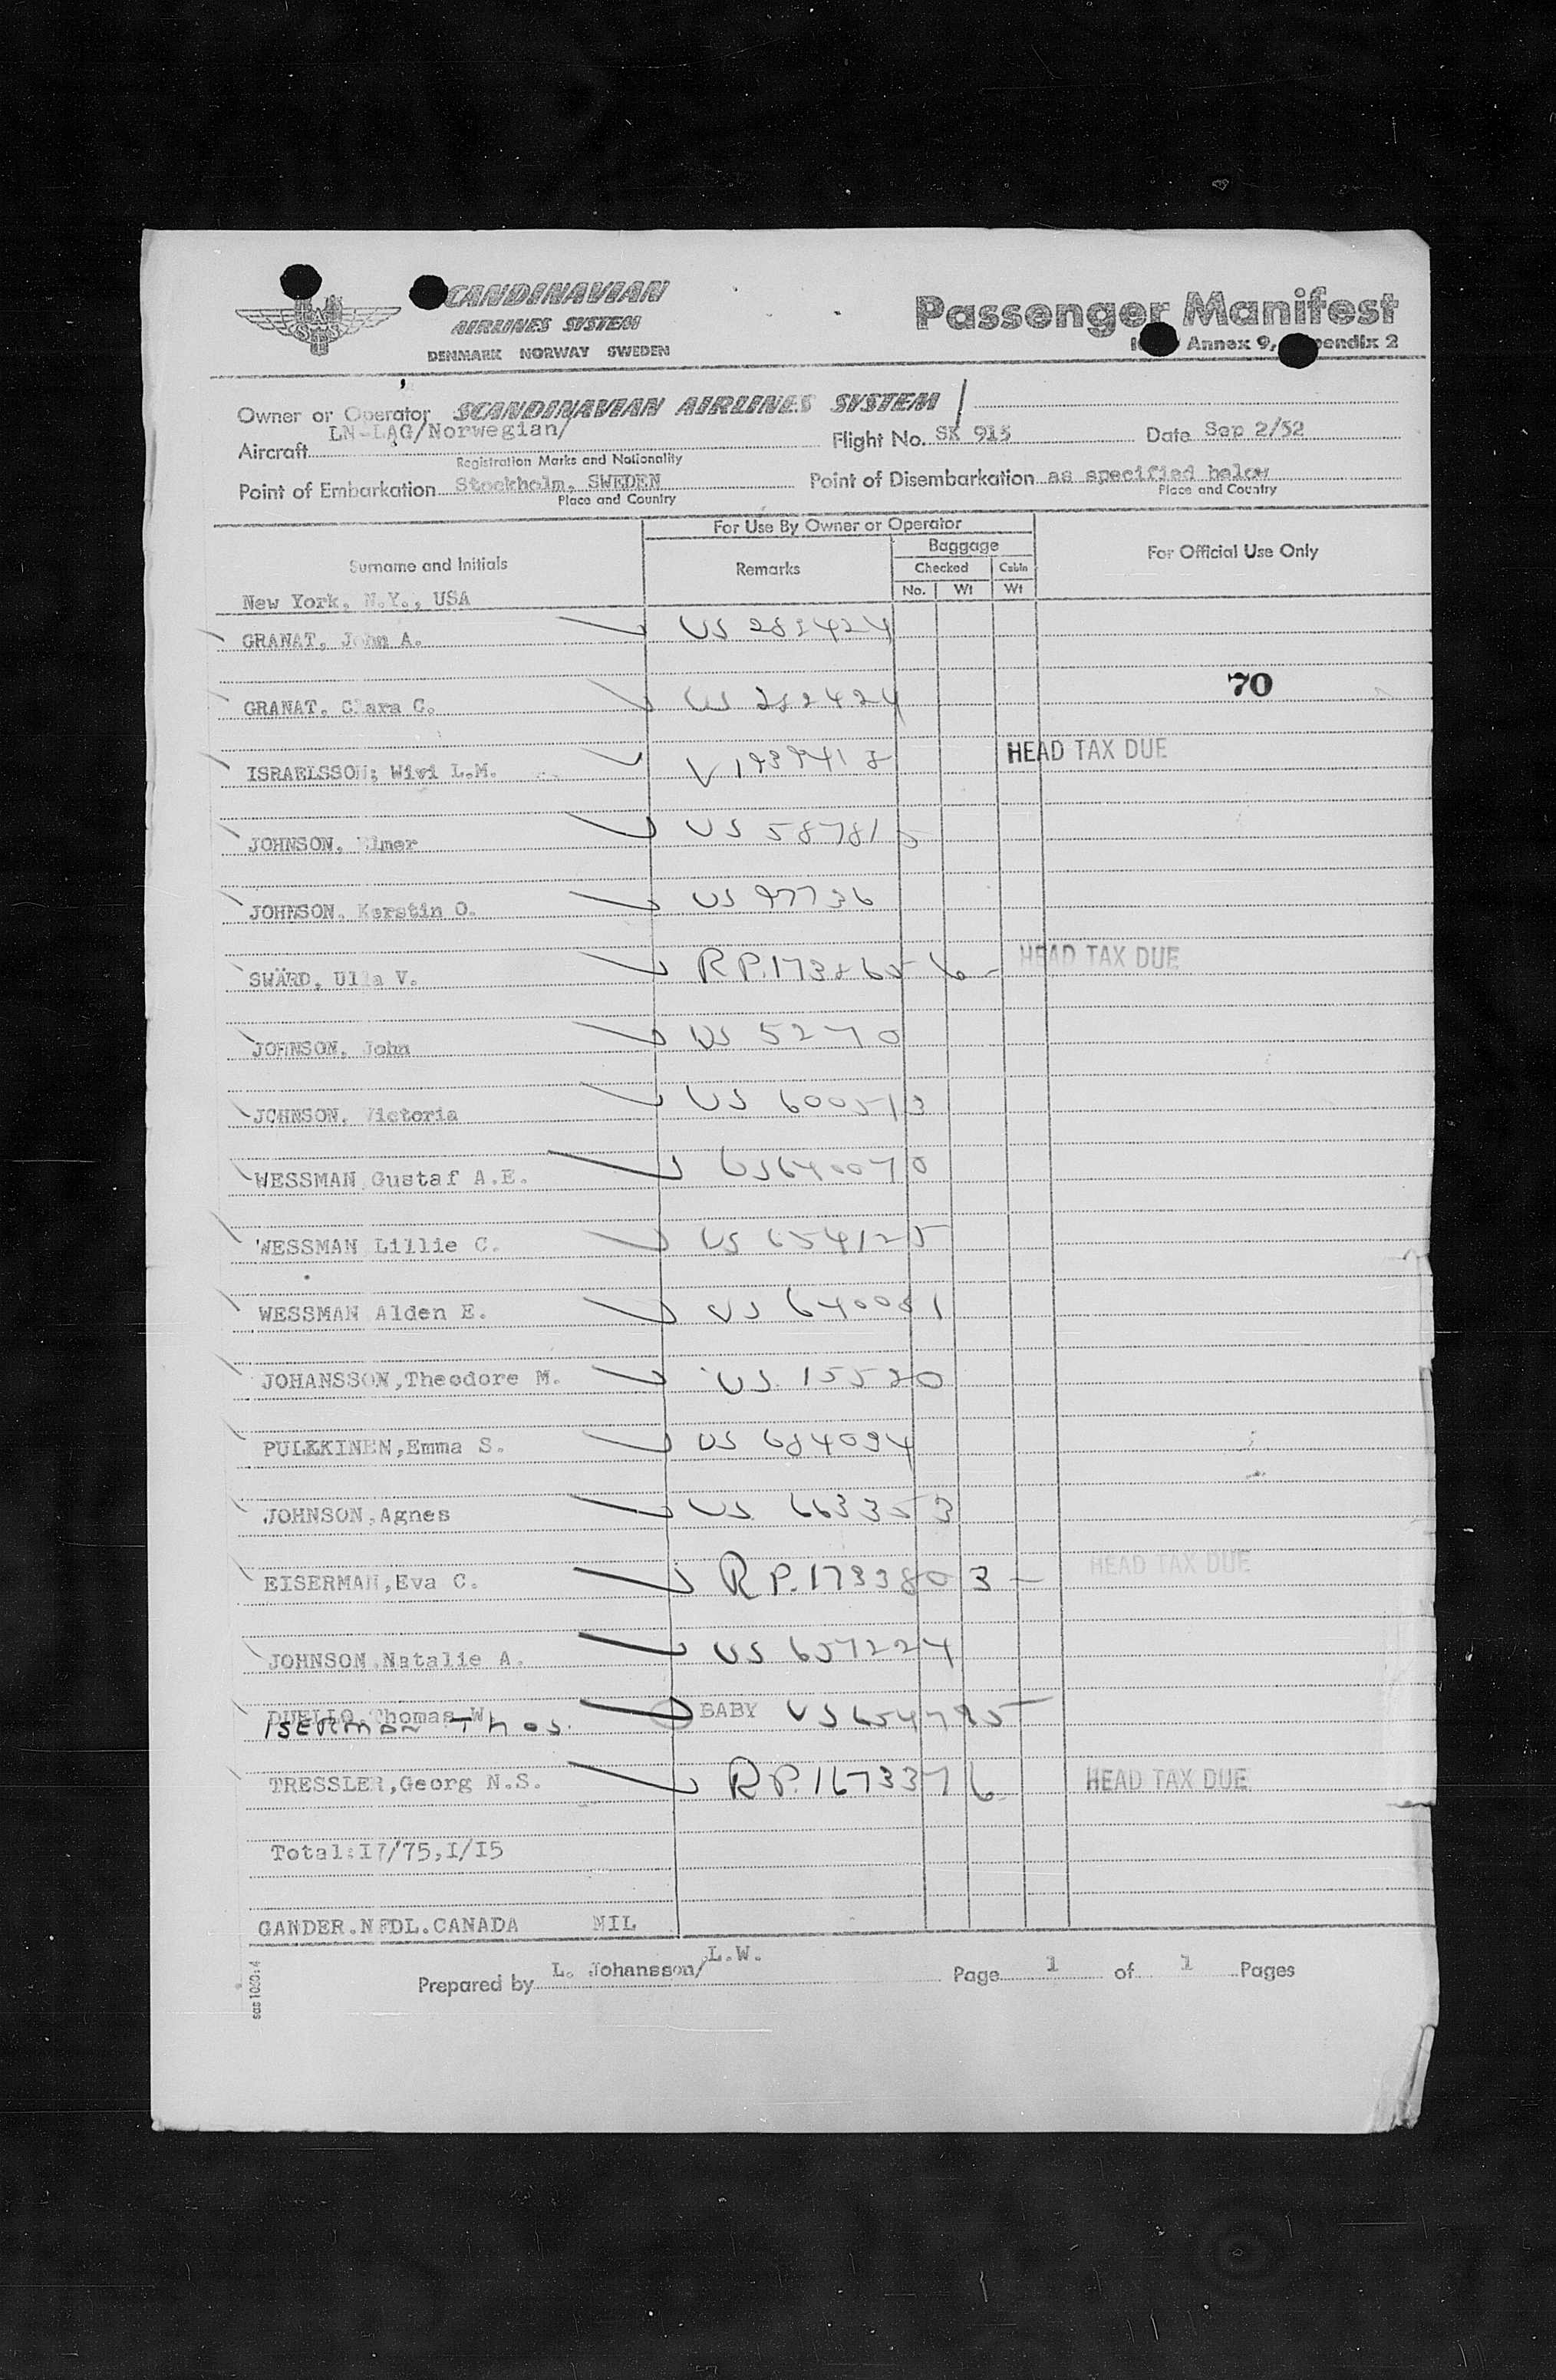 SCANDINAVIAN
AIRLINES SYSTEM
DENMARK NORWAY SWEDEN
Passenger Manifest
Annex 9, Appendix 2
Owner or Operator SCANDINAVIAN AIRLINES SYSTEM
Aircraft LN-LAG/Norwegian/ Flight No. SK 915 Date Sep 2/52
Registration Marks and Nationality
Point of Embarkation Stockholm, SWEDEN Point of Disembarkation as specified below
Place and Country Place and Country
For Use By Owner or Operator
Surname and Initials Remarks Baggage For Official Use Only
Checked Cabin
No. Wt Wt
New York, N.Y., USA
GRANAT, John A. US 282424
70
GRANAT, Clara C. US 282424
ISRAELSSON, Wivi L.M. V 1939418 HEAD TAX DUE
JOHNSON, Elmer US 587815
JOHNSON, Kerstin O. US 97736
SWÄRD, Ulla V. RP.1738656 HEAD TAX DUE
JOHNSON, John US 5270
JOHNSON, Victoria US 600513
WESSMAN Gustaf A.E. US 640070
WESSMAN Lillie C. US 654125
WESSMAN Alden E. US 640081
JOHANSSON,Theodore M. US 15520
PULKKINEN,Emma S. US 684094
JOHNSON,Agnes US 663353
EISERMAN,Eva C. RP.1733803 HEAD TAX DUE
JOHNSON,Natalie A. US 657224
DUELLO,Thomas W. BABY US 654785
ISERMAN Thos.
TRESSLER,Georg N.S. RP.1673376 HEAD TAX DUE
Total:I7/75,I/I5
GANDER.NFDL.CANADA NIL
Prepared by L. Johansson/L.W. Page 1 of 1 Pages
sas 1080:4